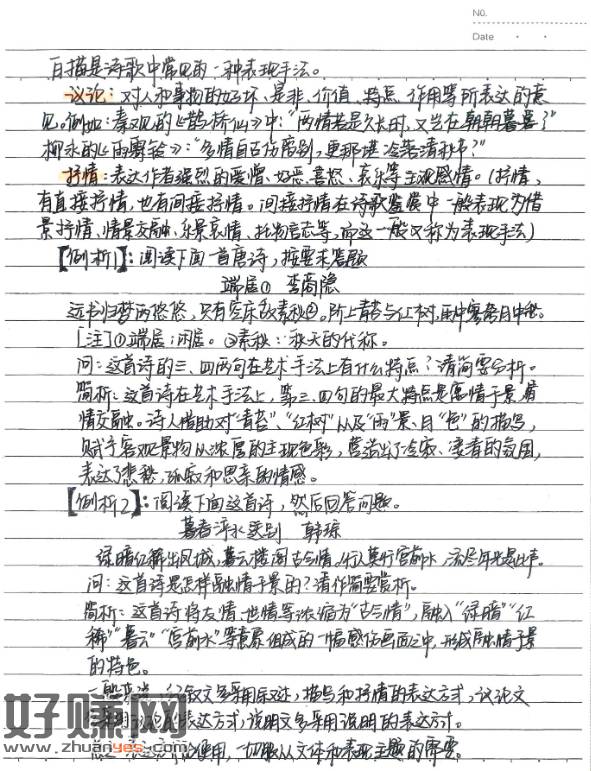 NO.
Date
白描是诗歌中常见的一种表现手法。
议论：对人和事物的好坏、是非、价值、特点、作用等所表达的意
见。例如：秦观的《鹊桥仙》中：“两情若是久长时，又岂在朝朝暮暮？”
柳永的《雨霖铃》：“多情自古伤离别，更那堪冷落清秋节？”
抒情：表达作者强烈的爱憎、好恶、喜怒、哀乐等主观感情。（抒情，
有直接抒情，也有间接抒情。间接抒情在诗歌鉴赏中一般表现为借
景抒情、情景交融、乐景哀情、托物言志等，而这一般又称为表现手法）
【例析1】：阅读下面一首唐诗，按要求答题
端居① 李商隐
远书归梦两悠悠，只有空床敌素秋②。阶下青苔与红树，雨中寥落月中愁。
［注］①端居：闲居。②素秋：秋天的代称。
问：这首诗的三、四两句在艺术手法上有什么特点？请简要分析。
简析：这首诗在艺术手法上，第三、四句的最大特点是寓情于景，
情交融。诗人借助对“青苔”、“红树”以及“雨”景、月“色”的描写，
赋予客观景物以浓厚的主观色彩，营造出了冷寂、凄清的氛围，
表达了悲愁、孤寂和思亲的情感。
【例析2】：阅读下面这首诗，然后回答问题。
暮春浐水送别 韩琮
绿暗红稀出凤城，暮云楼阁古今情。行人莫听宫前水，流尽年光是此声。
问：这首诗是怎样融情于景的？请作简要赏析。
简析：这首诗将友情、世情等浓缩为“古今情”，融入“绿暗”“红
稀”“暮云”“宫前水”等意象组成的一幅感伤画面之中，形成融情于景
的特色。
一般来说，记叙文多采用叙述，描写和抒情的表达方式，议论文
表达方式，说明文多采用说明的表达方式。
使用，一切服从文体和表现主题的需要。
好赚网
www.zhuanyes.com